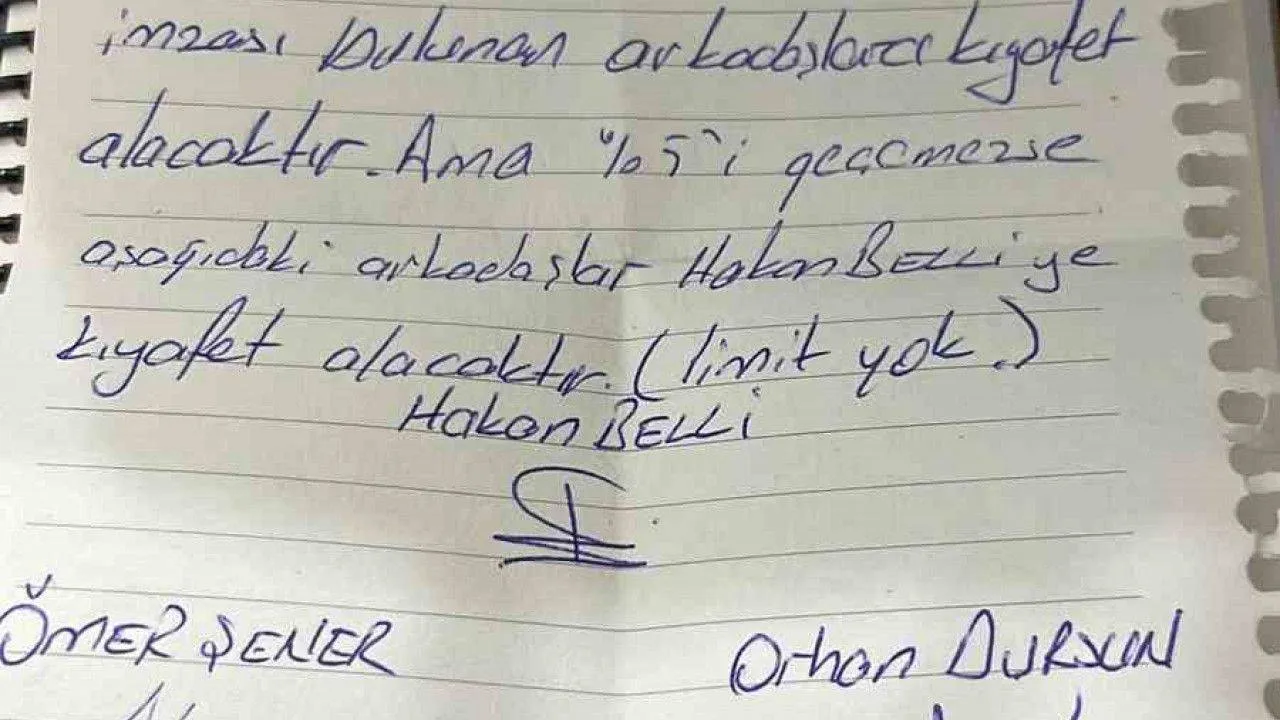 imzası bulunan arkadaşlara kıyafet
alacaktır. Ama %5'i geçemezse
aşağıdaki arkadaşlar Hakan BELLİ ye
kıyafet alacaktır. (limit yok.)
Hakan BELLİ
ÖMER ŞENER
Orhan DURSUN